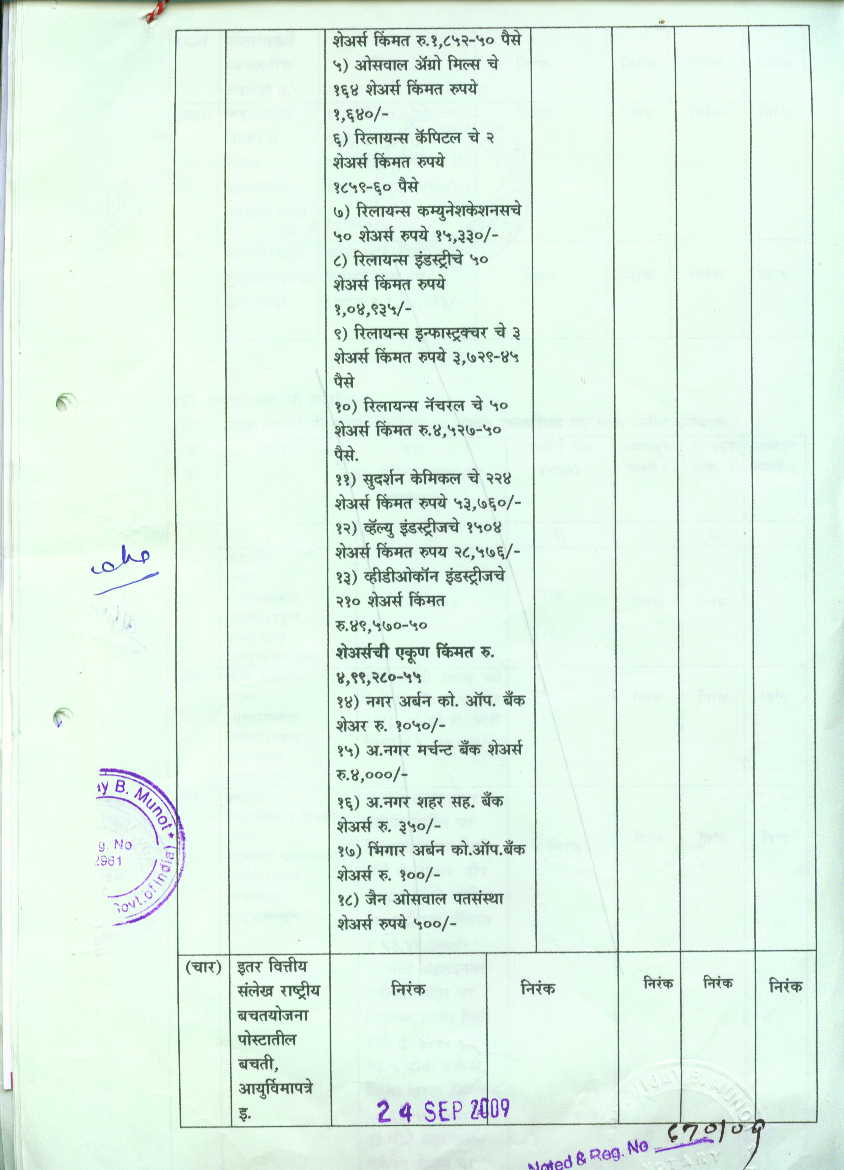 शेअर्स किंमत रु.१,८५२-५० पैसे
५) ओसवाल ॲग्रो मिल्स चे
१६४ शेअर्स किंमत रुपये
१,६४०/-
६) रिलायन्स कॅपिटल चे २
शेअर्स किंमत रुपये
१८५९-६० पैसे
७) रिलायन्स कम्युनेशकेशनसचे
५० शेअर्स रुपये १५,३३०/-
८) रिलायन्स इंडस्ट्रीचे ५०
शेअर्स किंमत रुपये
१,०४,९३५/-
९) रिलायन्स इन्फास्ट्रक्चर चे ३
शेअर्स किंमत रुपये ३,७२९-४५
पैसे
१०) रिलायन्स नॅचरल चे ५०
शेअर्स किंमत रु.४,५२७-५०
पैसे.
११) सुदर्शन केमिकल चे २२४
शेअर्स किंमत रुपये ५३,७६०/-
१२) व्हॅल्यु इंडस्ट्रीजचे १५०४
शेअर्स किंमत रुपय २८,५७६/-
१३) व्हीडीओकॉन इंडस्ट्रीजचे
२१० शेअर्स किंमत
रु.४९,५७०-५०
शेअर्सची एकूण किंमत रु.
४,९९,२८०-५५
१४) नगर अर्बन को. ऑप. बँक
शेअर रु. १०५०/-
१५) अ.नगर मर्चन्ट बँक शेअर्स
रु.४,०००/-
१६) अ.नगर शहर सह. बँक
शेअर्स रु. ३५०/-
१७) भिंगार अर्बन को.ऑप.बँक
शेअर्स रु. १००/-
१८) जैन ओसवाल पतसंस्था
शेअर्स रुपये ५००/-
ay B. Munot
g. No
2961
Govt. of India
(चार) इतर वित्तीय
संलेख राष्ट्रीय निरंक निरंक निरंक निरंक निरंक
बचतयोजना
पोस्टातील
बचती,
आयुर्विमापत्रे
इ.
24 SEP 2009
VIJAY B. MUNOT
Noted & Reg. No